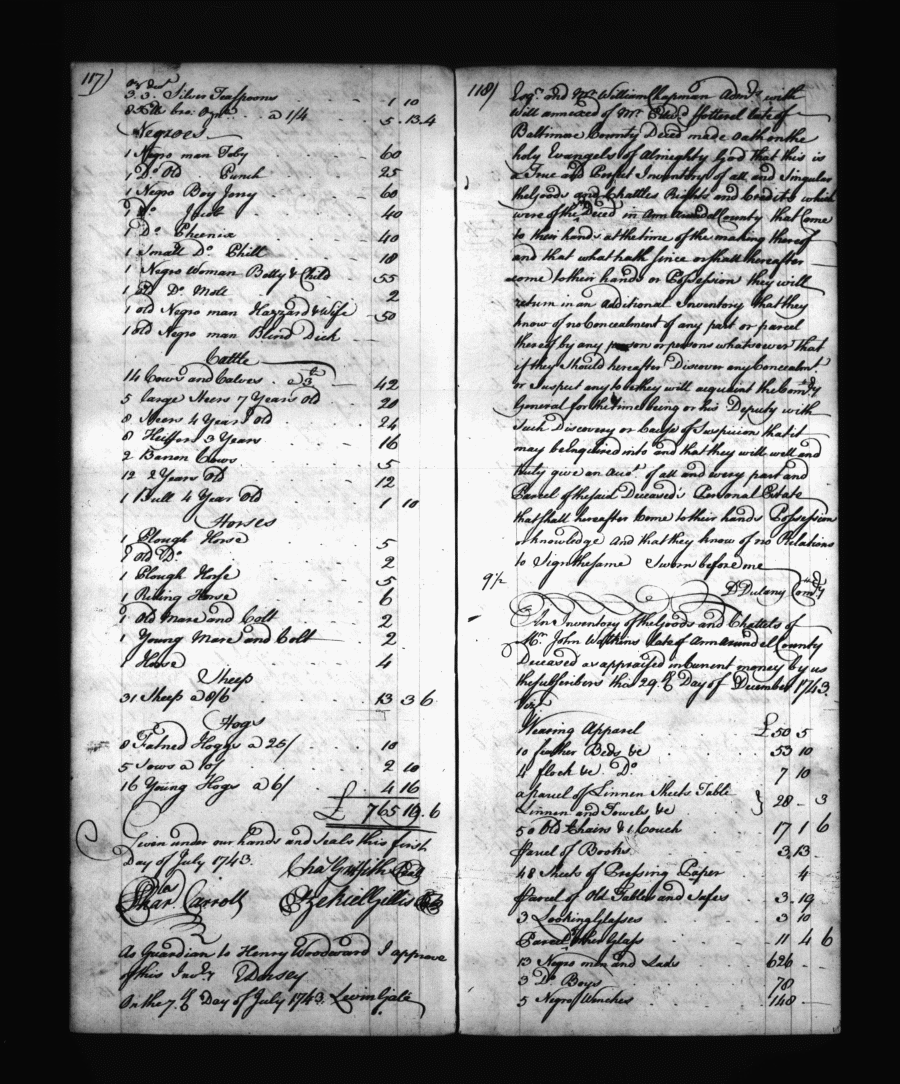 117)
3 3. Silver Teaspoons 1 10
a 1/4 5. 13.4
Negroes
1 Negro man Toby 60
1 Do Old Punch 25
1 Negro Boy Jerry 60
1 Do Jacob 40
1 Do Pheenix 40
1 Small Do Phill 18
1 Negro Woman Betty & Child 55
1 old Do Moll 2
1 old Negro man Hazzard & Wife 50
1 old Negro man Blind Dick
Cattle
14 Cows and Calves a 3 42
5 large Steers 7 Years old 20
8 Steers 4 Year old 24
8 Heiffors 3 Years 16
2 Barron Cows 5
12 2 Years Old 12
1 Bull 4 Year Old 1 10
Horses
1 Plough Horse 5
1 Old Do 2
1 Plough Horse 5
1 Riding Horse 6
1 Old Mare and Colt 2
1 Young Mare and Colt 2
1 Horse 4
Sheep
31 Sheep a 8/6 13 3 6
Hogs
8 Fatned Hoggs a 25/ 10
5 Sows a 10/ 2 10
16 Young Hogs a 6/ 4 16
£ 765 19. 6
Given under our hands and seals this first
Day of July 1743. Cha Griffith Seal
Char Carroll Ezekiel Gillis Seal
As Guardian to Henry Woodward I approve
of this Invry EDorsey
On the 7.th Day of July 1743. Levin Gale
118)
Esqr. and Mr William Chapman Admrs with
Will annexed of Mr Edwd ffotterel late of
Baltimore County Deced made oath on the
holy Evangels of Almighty God that this is
a True and Perfect Inventory of all and Singular
the Goods and Chattles Rights and Credits which
were of the Deced in Ann Arundell County that Come
to their hands at the time of the making thereof
and that what hath since or shall hereafter
come to their hands or Possession they will
return in an additional Inventory that they
know of no Concealment of any part or parcel
thereof by any person or persons whatsoever that
if they Should hereafter Discover any Concealmt.
or Suspect any to be they will acquaint the Comry
General for the time being or his Deputy with
Such Discovery or Cause of Suspicion that it
may be Enquired into and that they will well and
truly give an Acct. of all and every part and
Parcel of the said Deceased's Personal Estate
that shall hereafter Come to their hands Possession
or knowledge and that they know of no Relations
to Sign the same Sworn before me
9 1/2 D Dulany Comry
An Inventory of the Goods and Chattels of
Mr. John Watkins late of Ann Arundel County
Deceased as appraised in Current money by us
the subscribers this 29.th Day of December 1743.
Viz
Wearing Apparel £50 5
10 feather Beds &c 53 10
4 flock &c Do 7 10
a parcel of Linnen Sheets Table
Linnen and Towels &c } 28 - 3
50 Old Chairs & 1 Couch 17 1 6
Parcel of Books 3. 13 -
48 Sheets of Pressing Paper 4
Parcel of Old Tables and Safes 3. 19
3 Looking Glasses 3 10
Parcel other Glass 11 4 6
13 Negro men and Lads 626 -
3 Do Boys 78
5 Negro Wenches 148 -